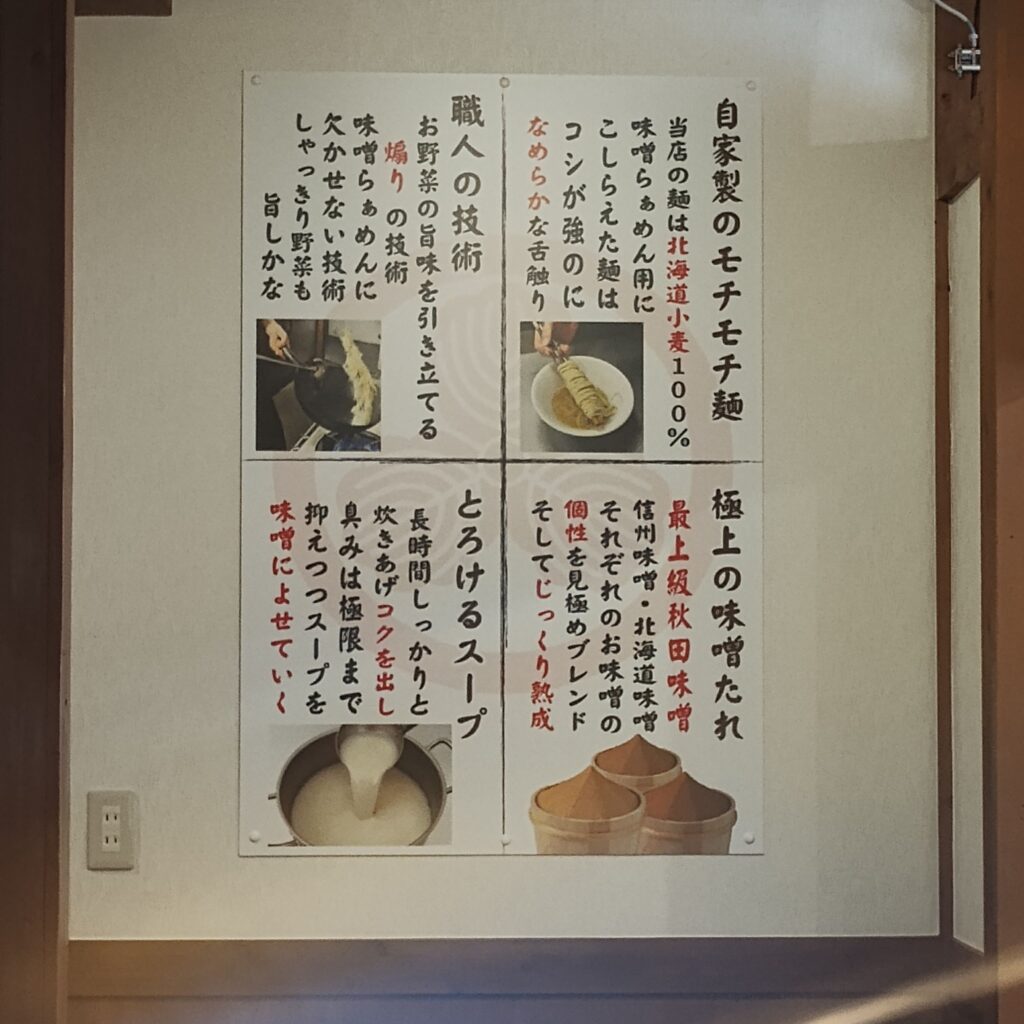 自家製のモチモチ麺
当店の麺は北海道小麦100%
味噌らぁめん用に
こしらえた麺は
コシが強のに
なめらかな舌触り
職人の技術
お野菜の旨味を引き立てる
煽りの技術
味噌らぁめんに
欠かせない技術
しゃっきり野菜も
旨しかな
極上の味噌たれ
最上級秋田味噌
信州味噌・北海道味噌
それぞれのお味噌の
個性を見極めブレンド
そしてじっくり熟成
とろけるスープ
長時間しっかりと
炊きあげコクを出し
臭みは極限まで
抑えつつスープを
味噌によせていく